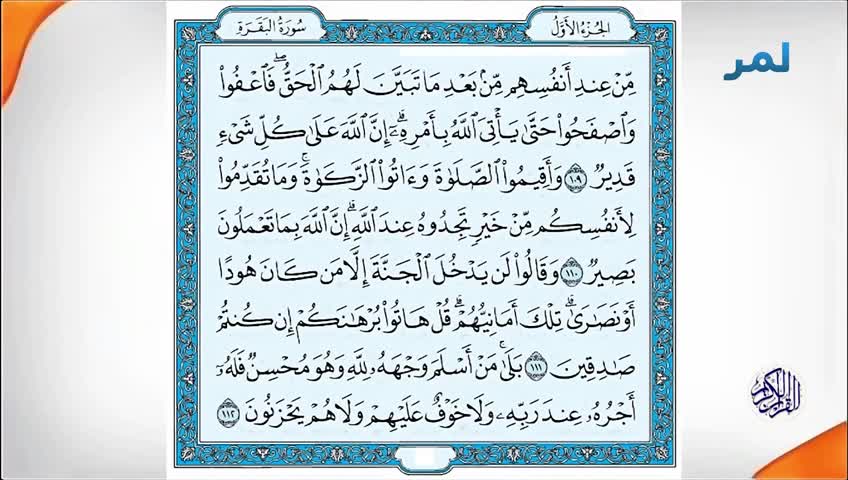 الجزء الأول
سورة البقرة
لمر
مِّنْ عِندِ أَنفُسِهِم مِّنۢ بَعْدِ مَا تَبَيَّنَ لَهُمُ ٱلْحَقُّ ۖ فَٱعْفُوا۟
وَٱصْفَحُوا۟ حَتَّىٰ يَأْتِىَ ٱللَّهُ بِأَمْرِهِۦٓ ۗ إِنَّ ٱللَّهَ عَلَىٰ كُلِّ شَىْءٍ
قَدِيرٌ ١٠٩ وَأَقِيمُوا۟ ٱلصَّلَوٰةَ وَءَاتُوا۟ ٱلزَّكَوٰةَ ۚ وَمَا تُقَدِّمُوا۟
لِأَنفُسِكُم مِّنْ خَيْرٍ تَجِدُوهُ عِندَ ٱللَّهِ ۗ إِنَّ ٱللَّهَ بِمَا تَعْمَلُونَ
بَصِيرٌ ١١٠ وَقَالُوا۟ لَن يَدْخُلَ ٱلْجَنَّةَ إِلَّا مَن كَانَ هُودًا
أَوْ نَصَٰرَىٰ ۗ تِلْكَ أَمَانِيُّهُمْ ۗ قُلْ هَاتُوا۟ بُرْهَٰنَكُمْ إِن كُنتُمْ
صَٰدِقِينَ ١١١ بَلَىٰ ۚ مَنْ أَسْلَمَ وَجْهَهُۥ لِلَّهِ وَهُوَ مُحْسِنٌ فَلَهُۥٓ
أَجْرُهُۥ عِندَ رَبِّهِۦ وَلَا خَوْفٌ عَلَيْهِمْ وَلَا هُمْ يَحْزَنُونَ ١١٢
القرآن الكريم